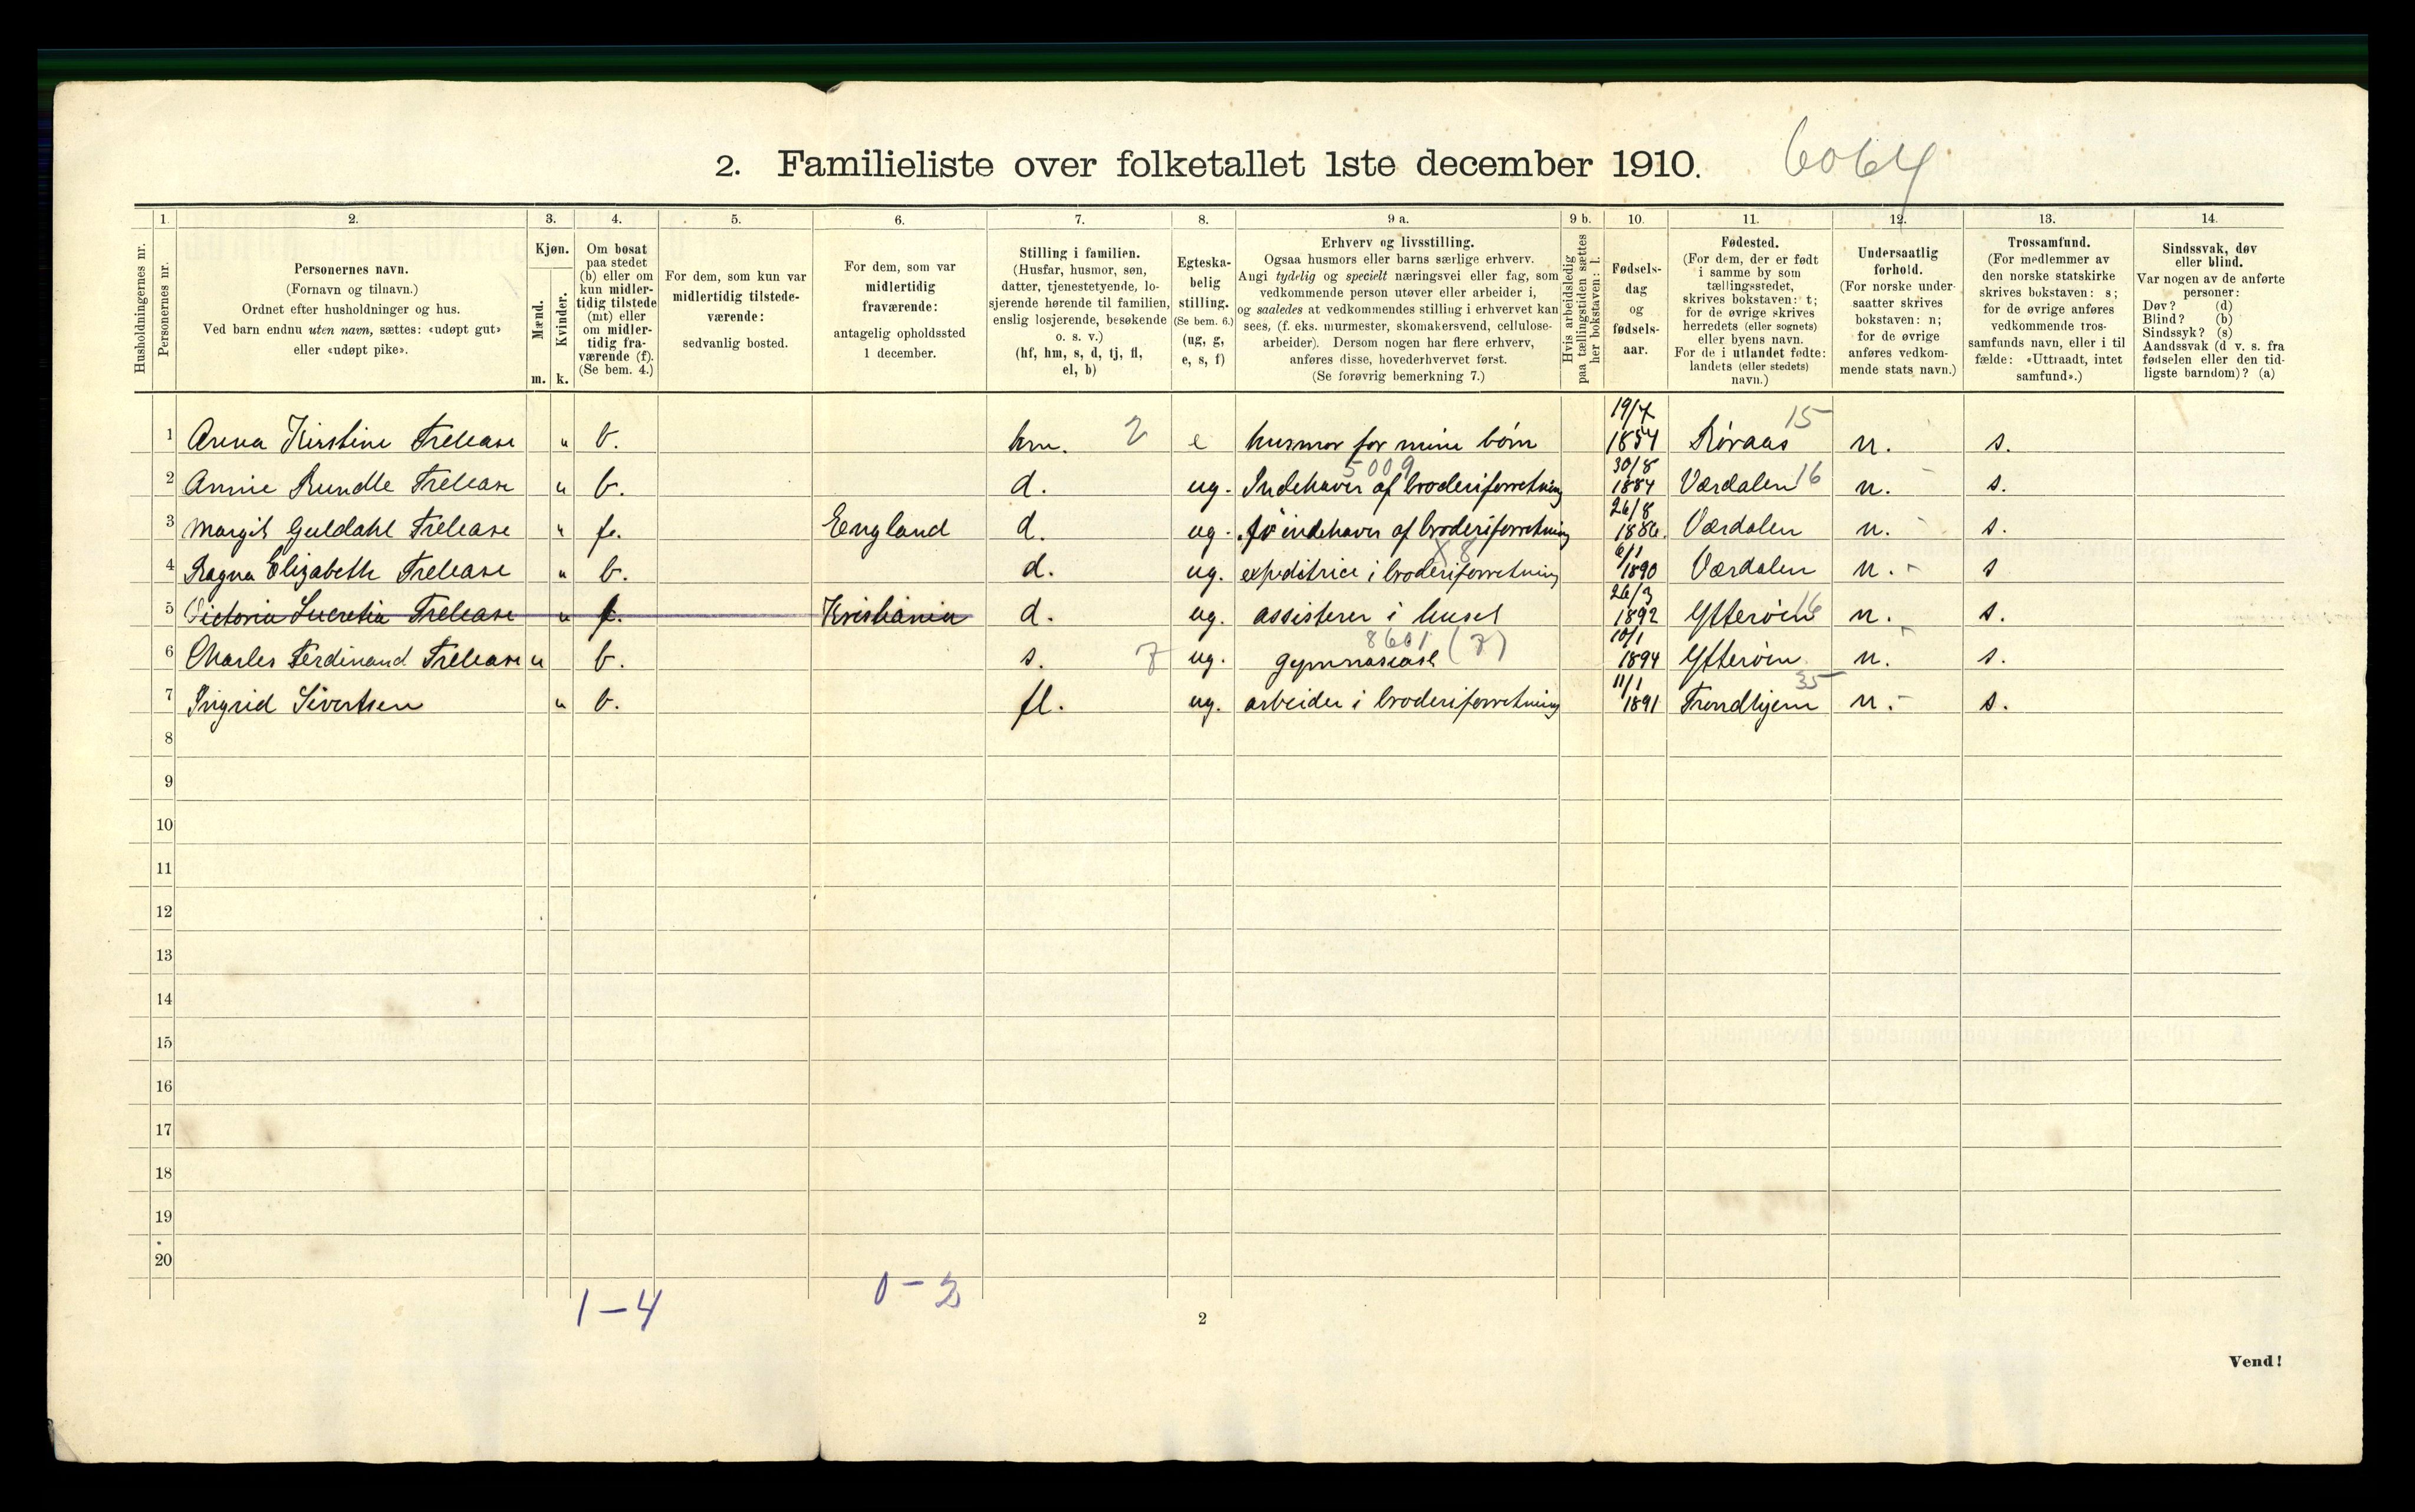 2. Familieliste over folketallet 1ste december 1910. 6064
1. 2. 3. 4. 5. 6. 7. 8. 9 a. 9 b. 10. 11. 12. 13. 14.
Husholdningernes nr.
Personernes nr.
Personernes navn.
(Fornavn og tilnavn.)
Ordnet efter husholdninger og hus.
Ved barn endnu uten navn, sættes: «udøpt gut»
eller «udøpt pike».
Kjøn.
Mænd.
Kvinder.
m. k.
Om bosat
paa stedet
(b) eller om
kun midler-
tidig tilstede
(mt) eller
om midler-
tidig fra-
værende (f).
(Se bem. 4.)
For dem, som kun var
midlertidig tilstede-
værende:
sedvanlig bosted.
For dem, som var
midlertidig
fraværende:
antagelig opholdssted
1 december.
Stilling i familien.
(Husfar, husmor, søn,
datter, tjenestetyende, lo-
sjerende hørende til familien,
enslig losjerende, besøkende
o. s. v.)
(hf, hm, s, d, tj, fl,
el, b)
Egteska-
belig
stilling.
(Se bem. 6.)
(ug, g,
e, s, f)
Erhverv og livsstilling.
Ogsaa husmors eller barns særlige erhverv.
Angi tydelig og specielt næringsvei eller fag, som
vedkommende person utøver eller arbeider i,
og saaledes at vedkommendes stilling i erhvervet kan
sees, (f. eks. murmester, skomakersvend, cellulose-
arbeider). Dersom nogen har flere erhverv,
anføres disse, hovederhvervet først.
(Se forøvrig bemerkning 7.)
Hvis arbeidsledig
paa tællingstiden sættes
her bokstaven: l.
Fødsels-
dag
og
fødsels-
aar.
Fødested.
(For dem, der er født
i samme by som
tællingsstedet,
skrives bokstaven: t;
for de øvrige skrives
herredets (eller sognets)
eller byens navn.
For de i utlandet fødte:
landets (eller stedets)
navn.)
Undersaatlig
forhold.
(For norske under-
saatter skrives
bokstaven: n;
for de øvrige
anføres vedkom-
mende stats navn.)
Trossamfund.
(For medlemmer av
den norske statskirke
skrives bokstaven: s;
for de øvrige anføres
vedkommende tros-
samfunds navn, eller i til-
fælde: «Uttraadt, intet
samfund».)
Sindssvak, døv
eller blind.
Var nogen av de anførte
personer:
Døv? (d)
Blind? (b)
Sindssyk? (s)
Aandssvak (d. v. s. fra
fødselen eller den tid-
ligste barndom)? (a)
19/7 15
1 Anna Kirstine Trelease " b. hm. 2 e husmor for mine børn 1854 Røraas n. s.
5009 30/8
2 Annie Rundle Trelease " b. d. ug. Indehaver af broderiforretning 1884 Værdalen 16 n. s.
26/8
3 Margit Guldahl Trelease " f. England d. ug. indehaver af broderiforretning 1886. Værdalen n. s.
X8 6/1
4 Ragna Elizabeth Trelease " b. d. ug. expeditrice i broderiforretning 1890 Værdalen n. s
26/3
5 Victoria Lucretia Trelease " f. Kristiania d. ug. assisterer i huset 1892 Ytterøen 16 n. s.
8601 (7) 10/1
6 Charles Ferdinand Trelease " b. s. 7 ug. gymnasiast 1894 Ytterøen n. s.
11/1 35
7 Ingrid Sivertsen " b. fl. ug. arbeider i broderiforretning 1891 Trondhjem n. s.
8
9
10
11
12
13
14
15
16
17
18
19
20
1-4 0-2
2
Vend!